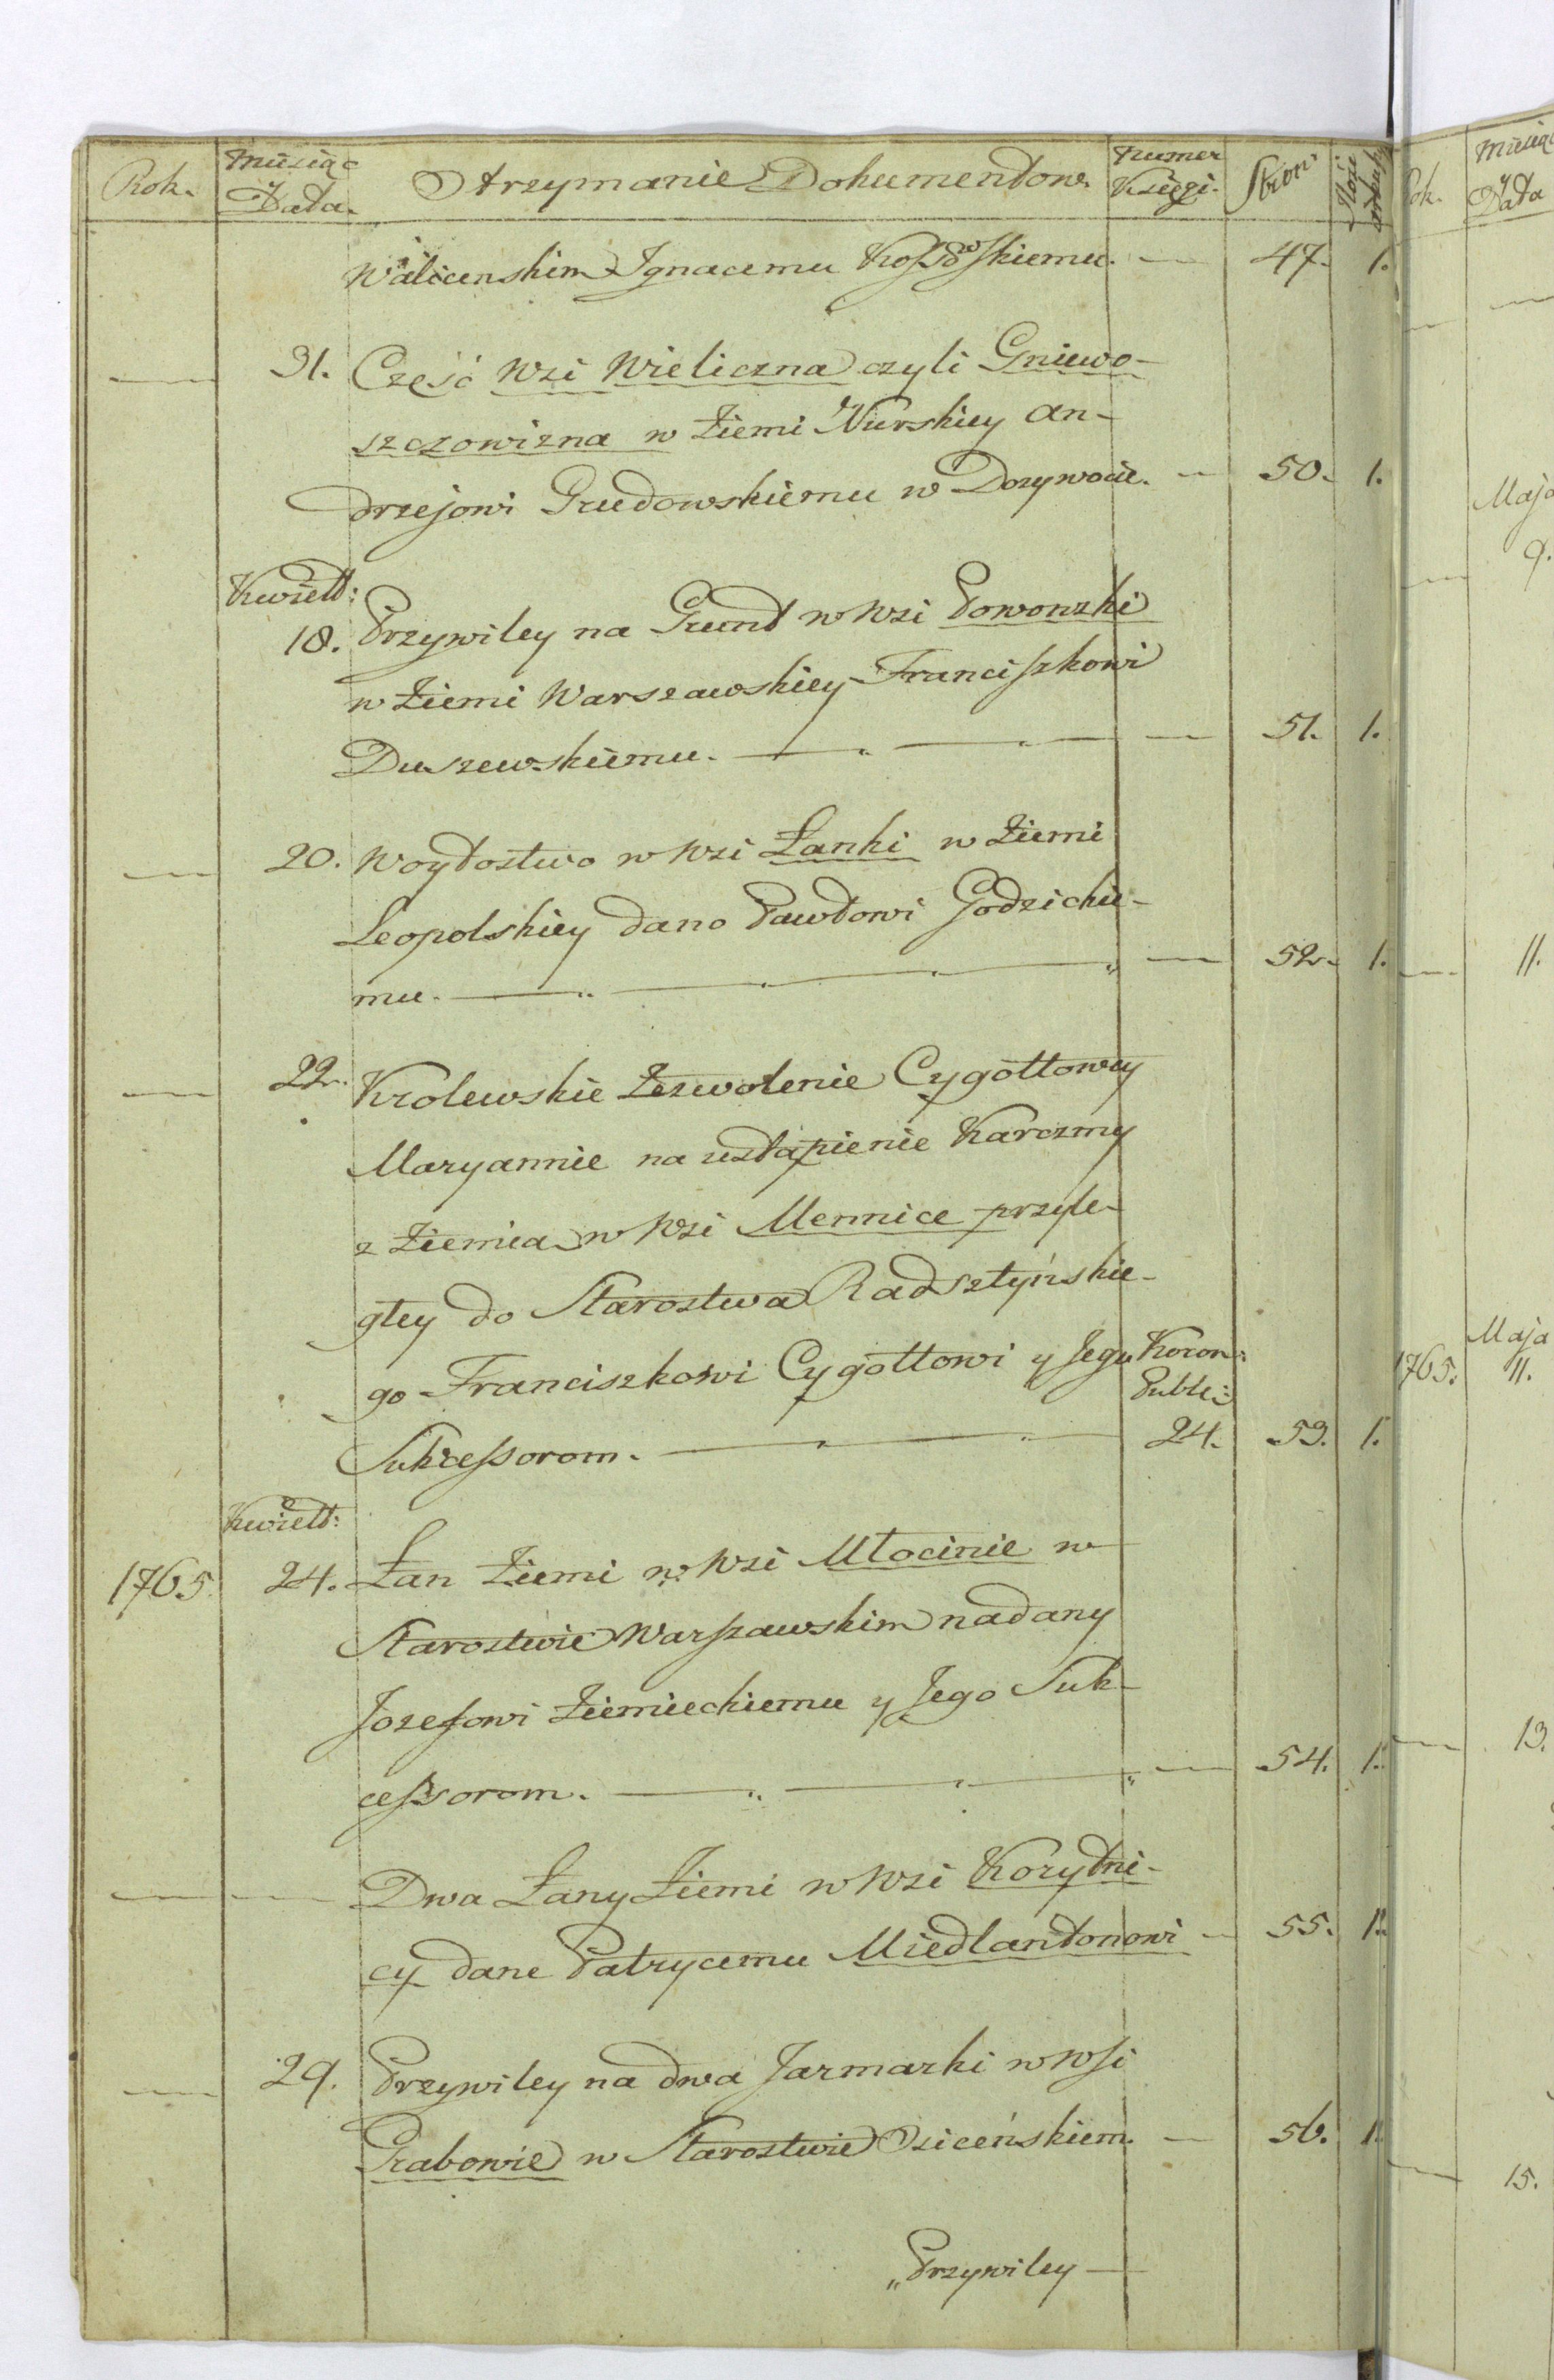 Rok. Miesiąc y Data. Otrzymanie Dokumentow. Numer Księgi. Stron
Walicenskim Ignacemu Kossowskiemu. — 47. 1.
— 31. Część Wsi Wieliczna czyli Gniewo-
szczowizna w Ziemi Nurskiey An-
drzejowi Grudowskiemu w Dozywocie. — 50. 1.
Kwiett:
18. Przywiley na Grunt w Wsi Powonzki
w Ziemi Warszawskiey Franciszkowi
Duszewskiemu. — 51. 1.
— 20. Woytostwo w Wsi Łanki w Ziemi
Leopolskiey dano Pawłowi Godzickie-
mu. — 52. 1.
— 22. Krolewskie Zezwolenie Cygottowey
Maryannie na ustąpienie Karczmy
z Ziemią w Wsi Mennice przyle-
głey do Starostwa Radsztyńskie-
go Franciszkowi Cygottowi y Jego Koron:
Publ:
Sukcessorom. — 24. 53. 1.
Kwiett:
1765. 24. Łan Ziemi w Wsi Młocinie w
Starostwie Warszawskim nadany
Jozefowi Ziemieckiemu y Jego Suk-
cessorom. — 54. 1.
— — Dwa Łany Ziemi w Wsi Korytni-
cy dane Patrycemu Miedlantonowi — 55. 1.
— 29. Przywiley na dwa Jarmarki w Wsi
Grabowie w Starostwie Osiceńskiem. — 56. 1.
„Przywiley —
Rok. Miesiąc y Data
Maja
9.
11.
Maja
1765. 11.
13.
15.